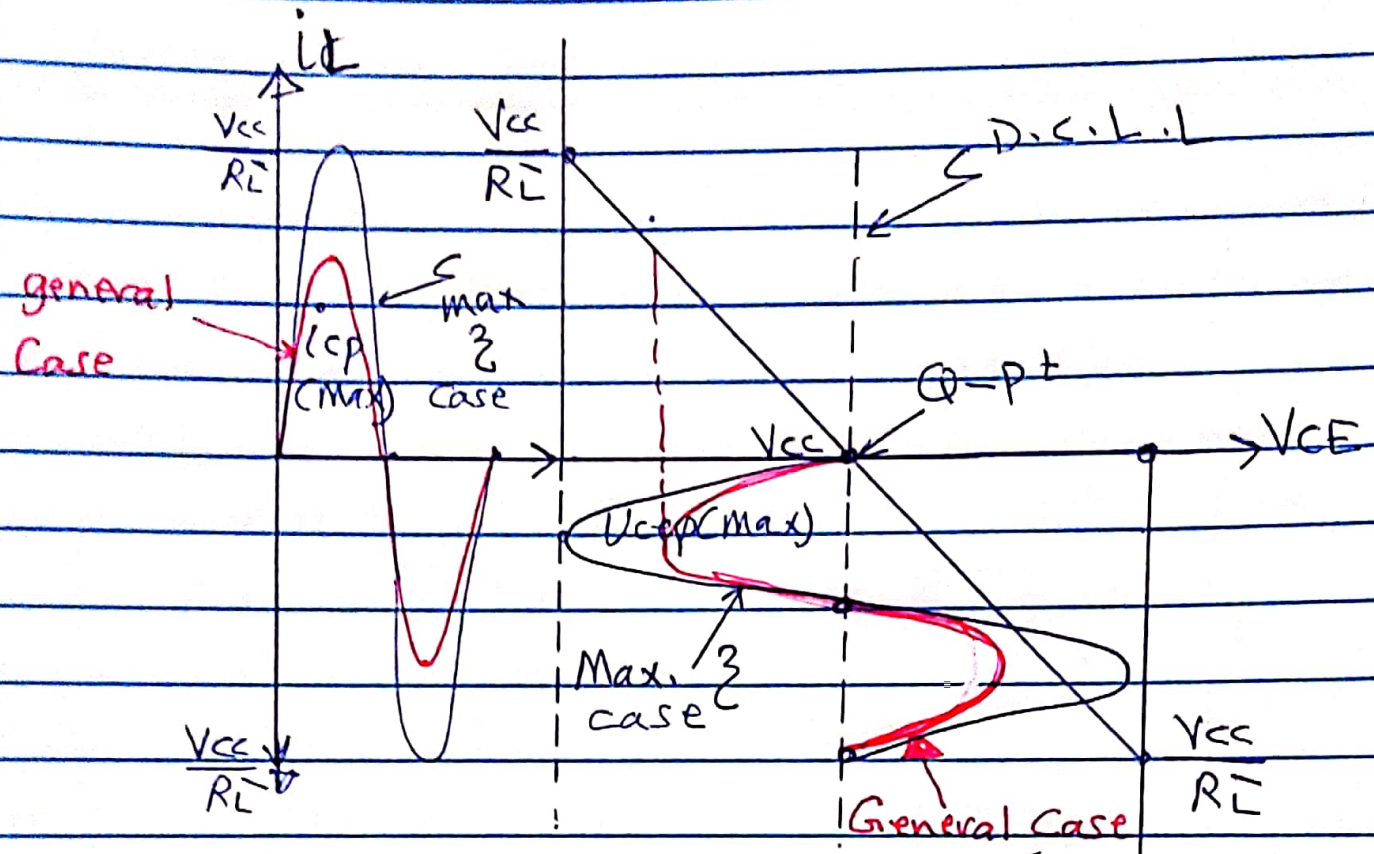 iL
Vcc
RL̄
Vcc
RL̄
D.C.L.L
general
Case
icp
(Max)
max
ξ
case
Q-pt
Vcc
VCE
Vcep(Max)
Max. ξ
case
Vcc
RL̄
Vcc
RL̄
General Case